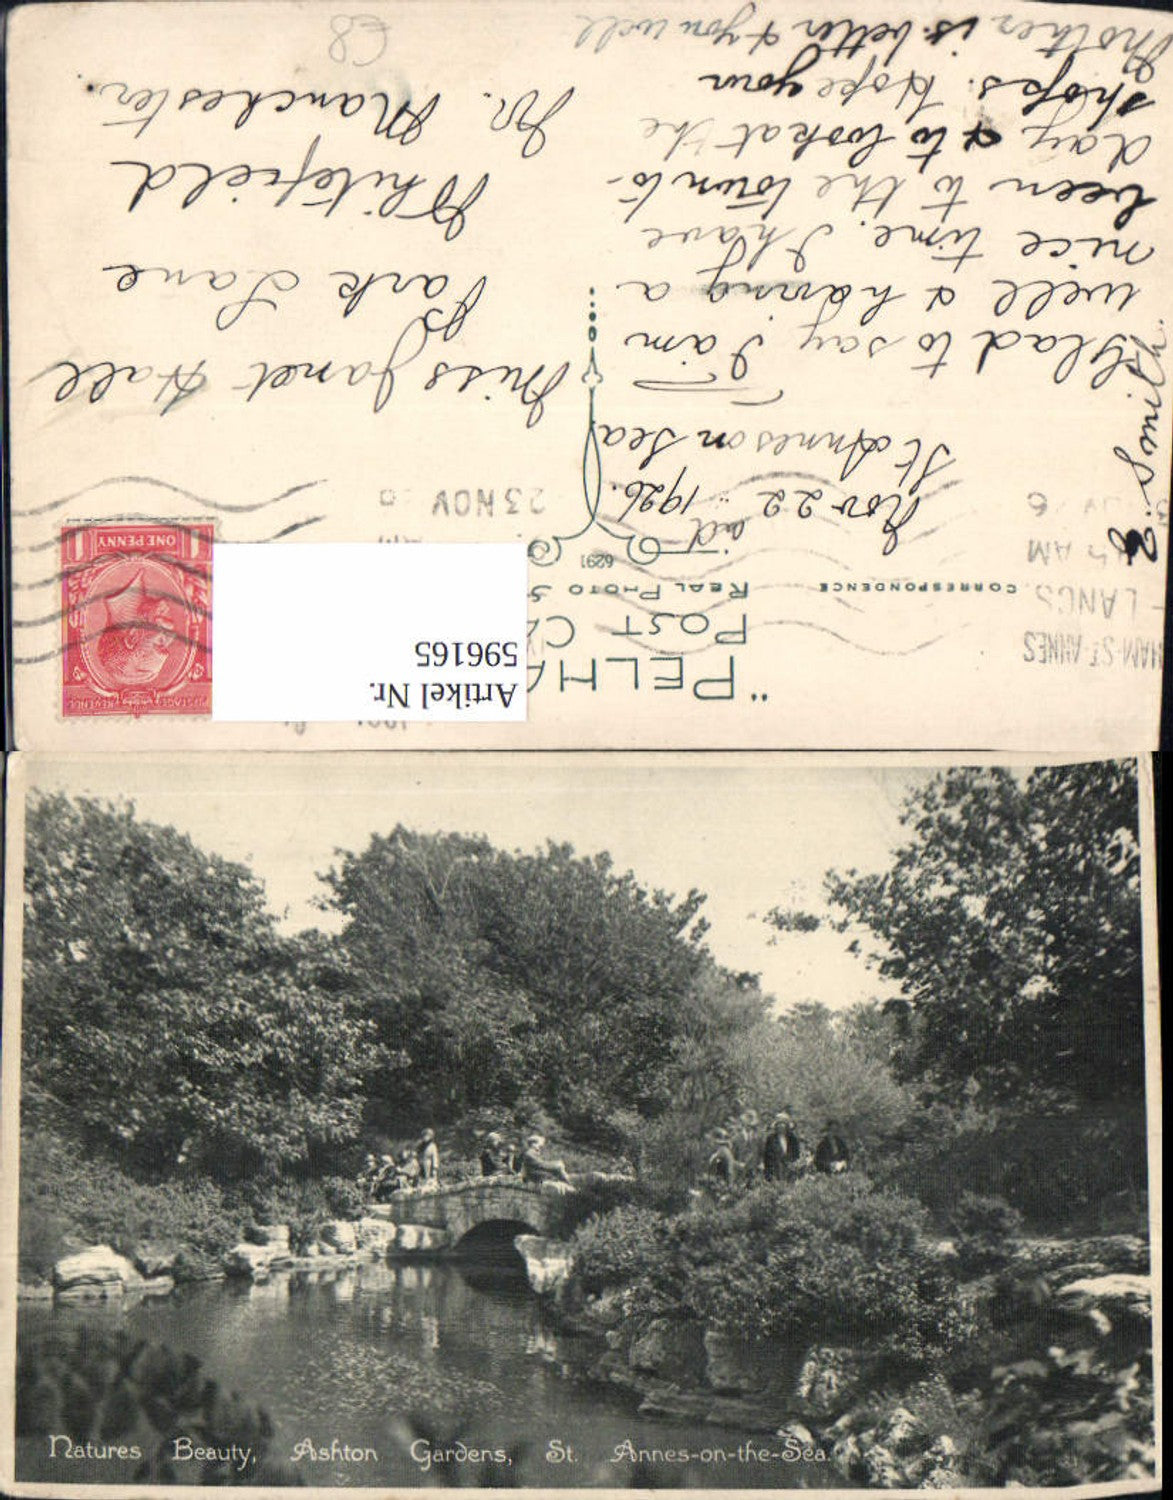 "PELHA
POST CA
REAL PHOTO S
6291
CORRESPONDENCE
Artikel Nr.
596165
HAM-ST-ANNES
LANCS.
AM
23 NOV
POSTAGE REVENUE
ONE PENNY
Nov 22nd 1926.
St Annes on Sea
Glad to say I am
well & having a
nice time. I have
been to the town to-
day & to look at the
shops. Hope your
Mother is better & you well
Miss Janet Hall
Park Lane
Whitefield
Nr. Manchester.
£8
Natures Beauty, Ashton Gardens, St. Annes-on-the-Sea.